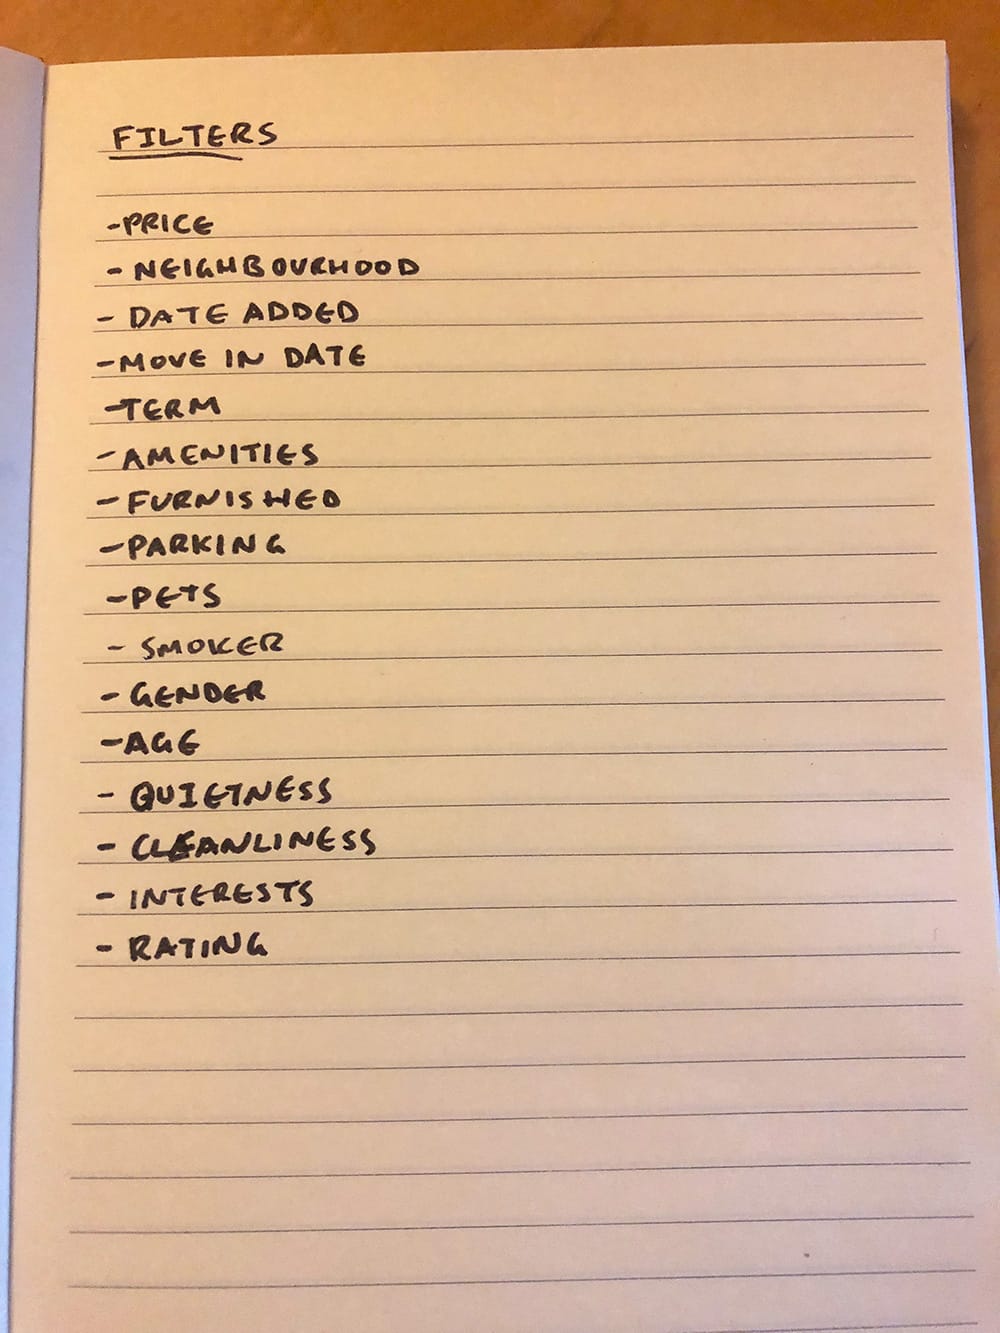 FILTERS
-PRICE
- NEIGHBOURHOOD
- DATE ADDED
-MOVE IN DATE
-TERM
-AMENITIES
-FURNISHED
-PARKING
-PETS
- SMOKER
- GENDER
-AGE
- QUIETNESS
- CLEANLINESS
- INTERESTS
- RATING